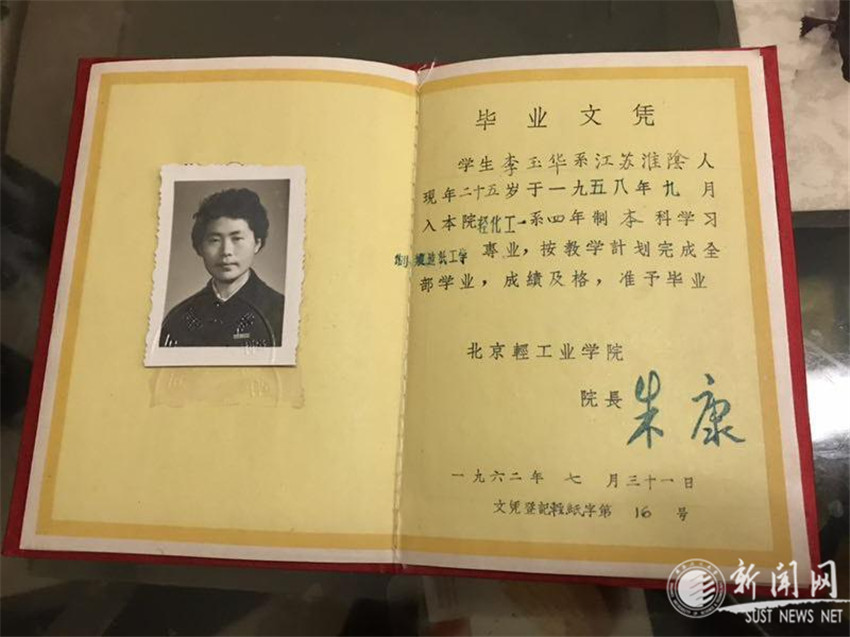 毕业文凭
学生李玉华系江苏淮陰人
现年二十五岁于一九五八年九月
入本院轻化工系四年制本科学习
制浆造紙工学专业，按教学計划完成全
部学业，成績及格，准予毕业
北京輕工业学院
院長 朱康
一九六二年七月三十一日
文凭登記輕紙字第16号
新闻网
SUST NEWS NET